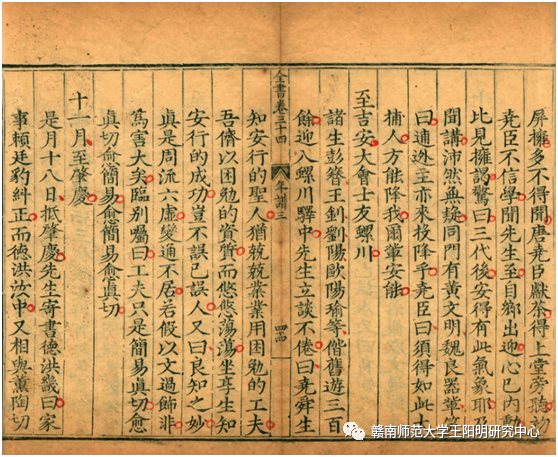 屏擁多不得聞唐堯臣獻茶得上堂旁聽初
堯臣不信學聞先生至自鄉出迎心已內動
比見擁謁驚曰三代後安得有此氣象耶及
聞講沛然無疑同門有黃文明魏良器輩笑
曰逋逃主亦來投降乎堯臣曰須得如此大
捕人方能降我爾輩安能
至吉安大會士友螺川
諸生彭簪王釗劉陽歐陽瑜等偕舊遊三百
餘迎入螺川驛中先生立談不倦曰堯舜生
全書卷三十四
年譜三
知安行的聖人猶兢兢業業用困勉的工夫
吾儕以困勉的資質而悠悠蕩蕩坐享生知
安行的成功豈不誤己誤人又曰良知之妙
眞是周流六虛變通不居若假以文過飾非
爲害大矣臨別囑曰工夫只是簡易眞切愈
眞切愈簡易愈簡易愈眞切
十一月至肇慶
是月十八日抵肇慶先生寄書德洪畿曰家
事賴廷豹糾正而德洪汝中又相與薰陶切
赣南师范大学王阳明研究中心